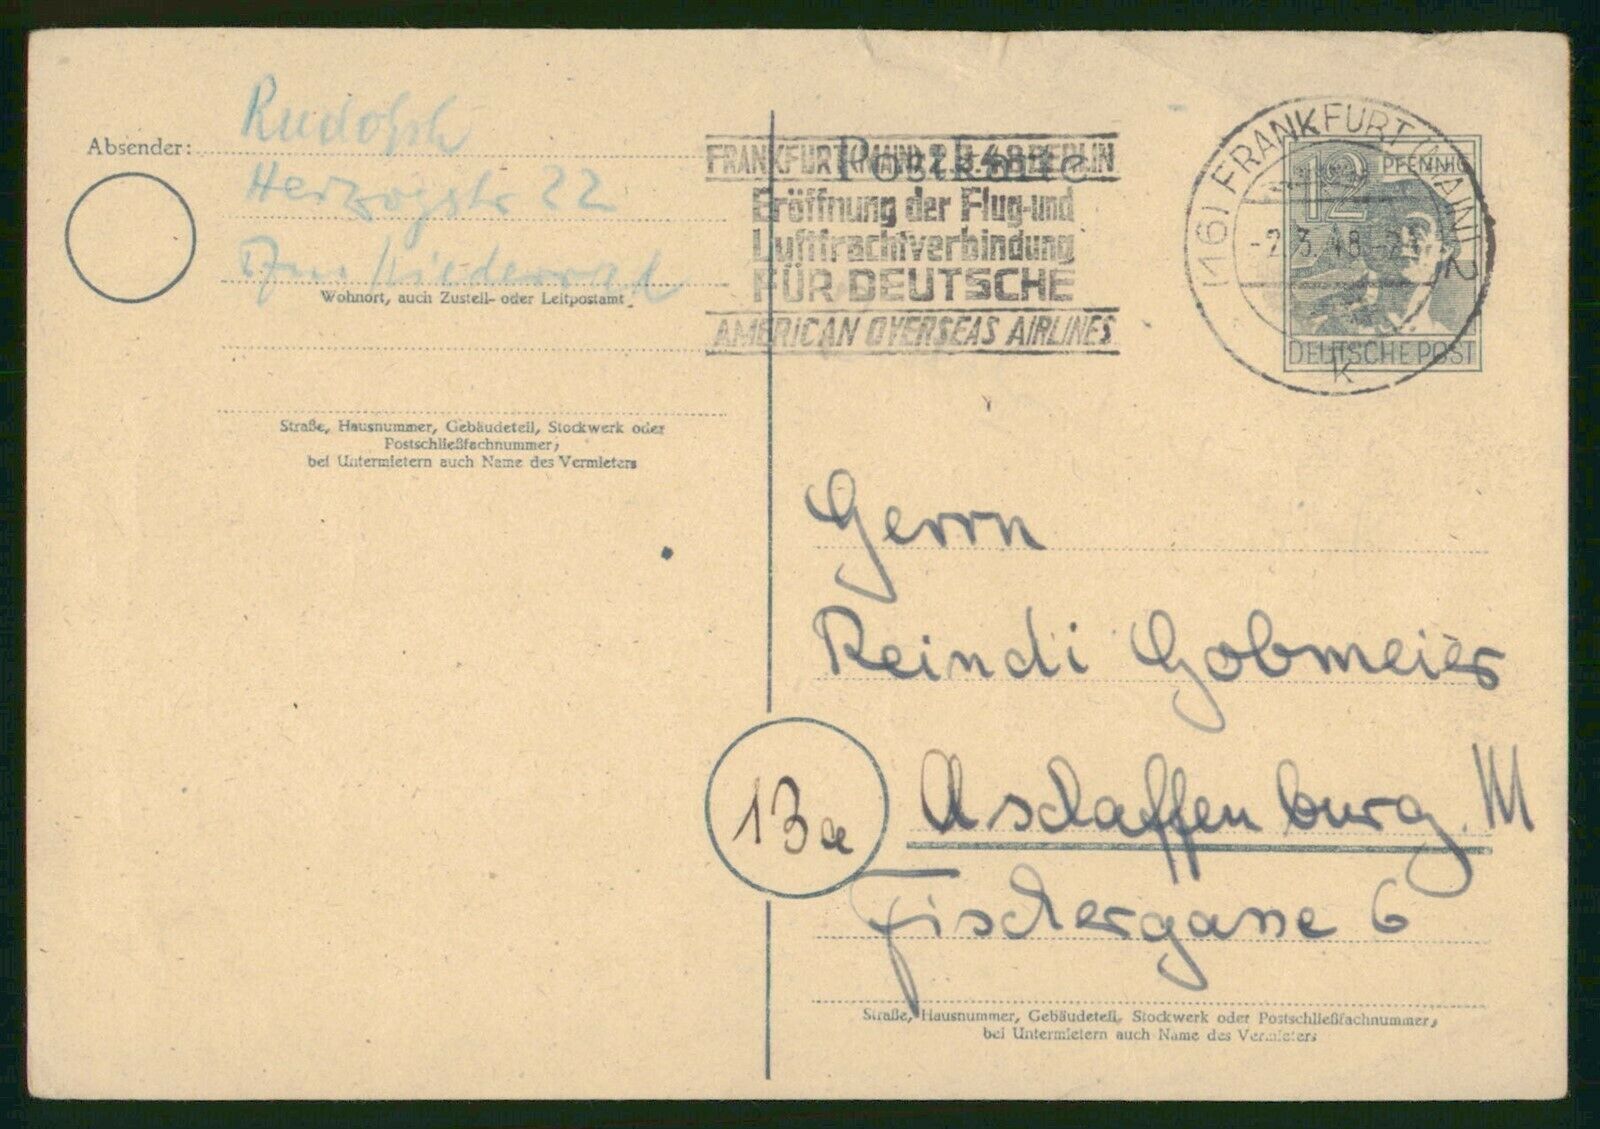 Absender:
Rudolph
Herzogstr 22
Wohnort, auch Zustell- oder Leitpostamt
Straße, Hausnummer, Gebäudeteil, Stockwerk oder
Postschließfachnummer;
bei Untermietern auch Name des Vermieters
Postkarte
FRANKFURT(MAIN) 2.3.48 BERLIN
Eröffnung der Flug-und
Luftfrachtverbindung
FÜR DEUTSCHE
AMERICAN OVERSEAS AIRLINES
(16) FRANKFURT (MAIN) 2
-2.3.48
k
12 PFENNIG
DEUTSCHE POST
Herrn
Reindi Gobmeier
13a
Aschaffenburg. M
Fischergasse 6
Straße, Hausnummer, Gebäudeteil, Stockwerk oder Postschließfachnummer,
bei Untermietern auch Name des Vermieters